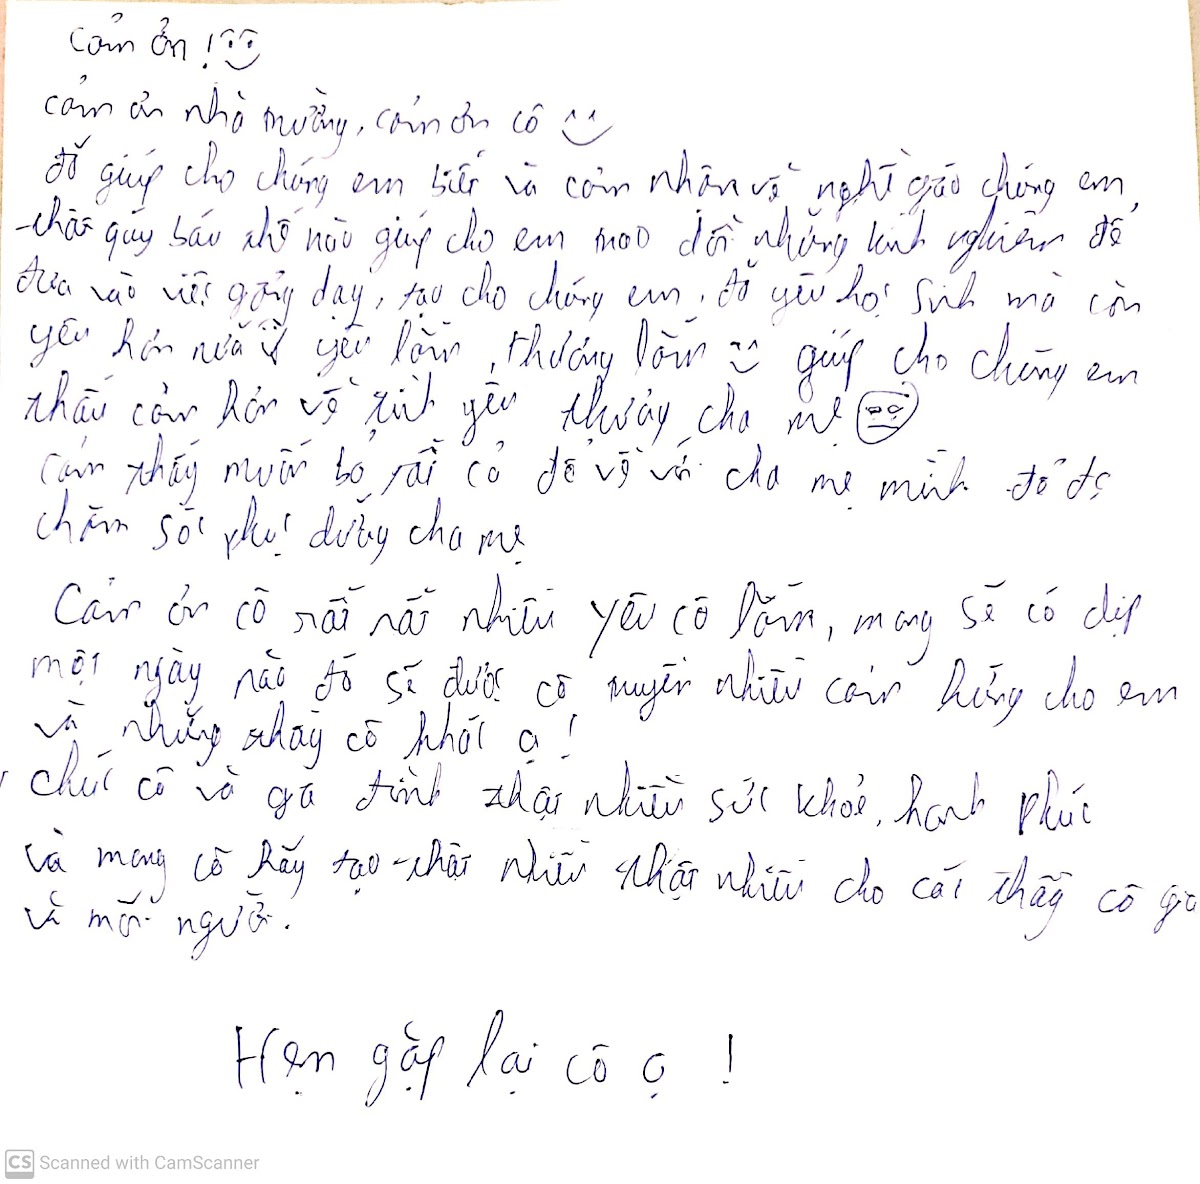 Cảm ơn!
Cảm ơn nhà trường, cảm ơn cô
đã giúp cho chúng em biết và cảm nhận về nghề giáo chúng em
thật quý báu thế nào giúp cho em trao dồi những kinh nghiệm để
đưa vào việc giảng dạy, tạo cho chúng em, đã yêu học sinh mà còn
yêu hơn nữa yêu lắm, thương lắm giúp cho chúng em
thấu cảm hơn về tình yêu thương cha mẹ
cảm thấy muốn bỏ tất cả để về với cha mẹ mình để đc
chăm sóc phụng dưỡng cha mẹ
Cảm ơn cô rất rất nhiều yêu cô lắm, mong sẽ có dịp
một ngày nào đó sẽ được cô truyền nhiều cảm hứng cho em
và những thầy cô khác ạ!
chúc cô và gia đình thật nhiều sức khoẻ, hạnh phúc
và mong cô hãy tạo thật nhiều thật nhiều cho các thầy cô
và mọi người.
Hẹn gặp lại cô ạ !
CS Scanned with CamScanner